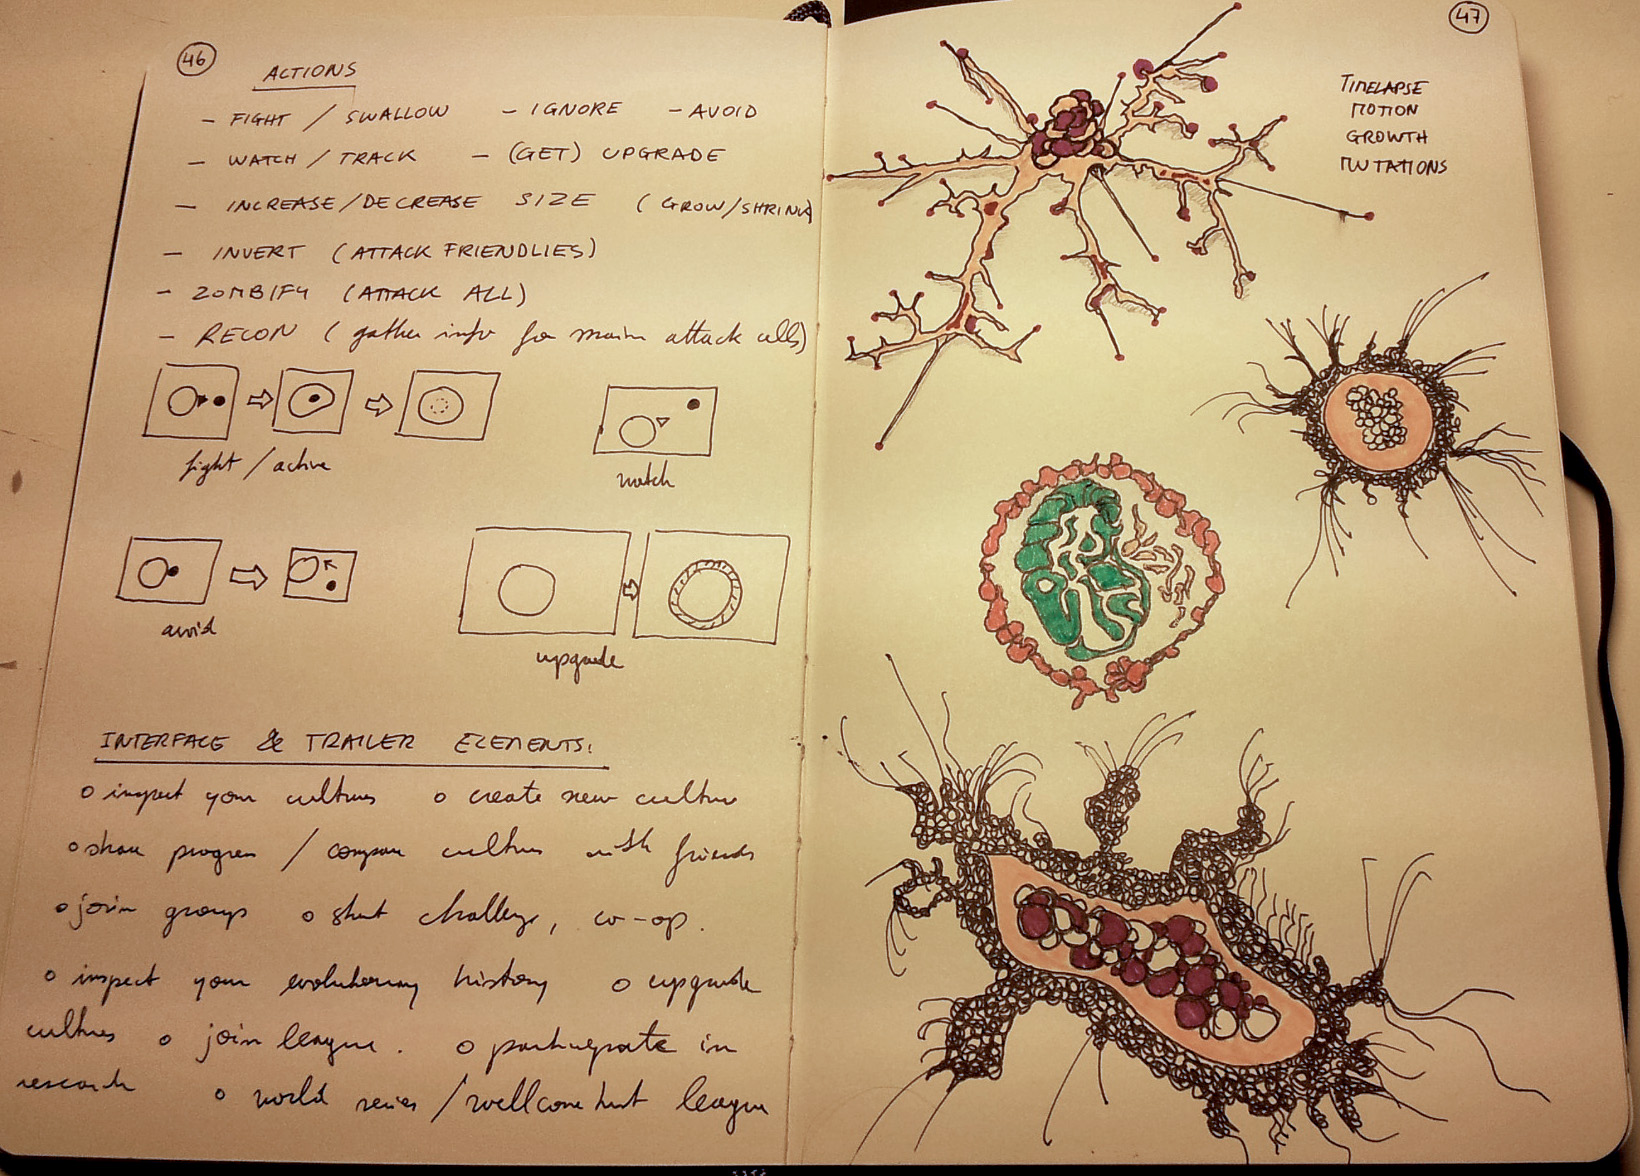 46
ACTIONS
- FIGHT / SWALLOW - IGNORE - AVOID
- WATCH / TRACK - (GET) UPGRADE
- INCREASE/DECREASE SIZE (GROW/SHRINK)
- INVERT (ATTACK FRIENDLIES)
- ZOMBIFY (ATTACK ALL)
- RECON (gather info for main attack cells)
fight / active
watch
avoid
upgrade
INTERFACE & TRAILER ELEMENTS:
o inspect your cultures o create new culture
o share progress / compare cultures with friends
o join groups o start challenge, co-op.
o inspect your evolutionary history o upgrade
cultures o join league. o participate in
research o world series / wellcome trust league
47
TIMELAPSE
MOTION
GROWTH
MUTATIONS